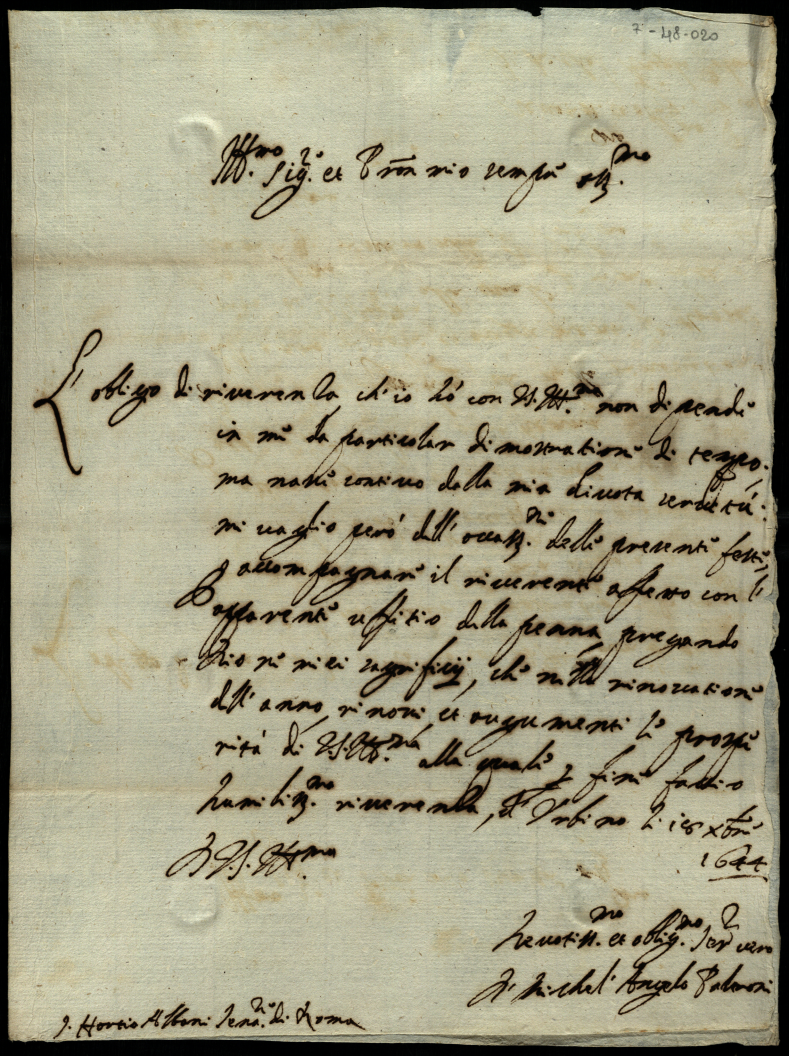 7-48-020
Ill.mo Sig.re et Pron mio sempre oss.mo
L'obligo di riverenza, ch'io hò con V.S. Ill.ma non dipende
in me da particolar dimostratione di tempo,
ma nasce continuo dalla mia divota servitù:
mi vaglio però dell'occass.ne delle presenti feste,
p accompagnare il riverente affetto con l'
apparente uffitio della penna, pregando
Dio ne miei sagrificij, che nella rinovatione
dell'anno, rinovi, et augumenti le prospe
rità di V.S. Ill.ma alla quale p fine faccio
humiliss.mo riverenza, d'Urbino li 18 xbre
1644
D V.S. Ill.ma
Devotiss.mo et oblig.mo Ser.re vero
Michel'Angelo Palmoni
S. Hortio Albani Sena.re di Roma